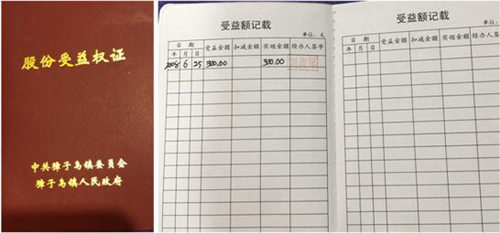 股份受益权证
中共獐子岛镇委员会
獐子岛镇人民政府
受益额记载
单位：元
日期 受益金额 扣减金额 实领金额 经办人签字
年 月 日
2008 6 25 300.00 300.00
受益额记载
单位：元
日期 受益金额 扣减金额 实领金额 经办人签字
年 月 日